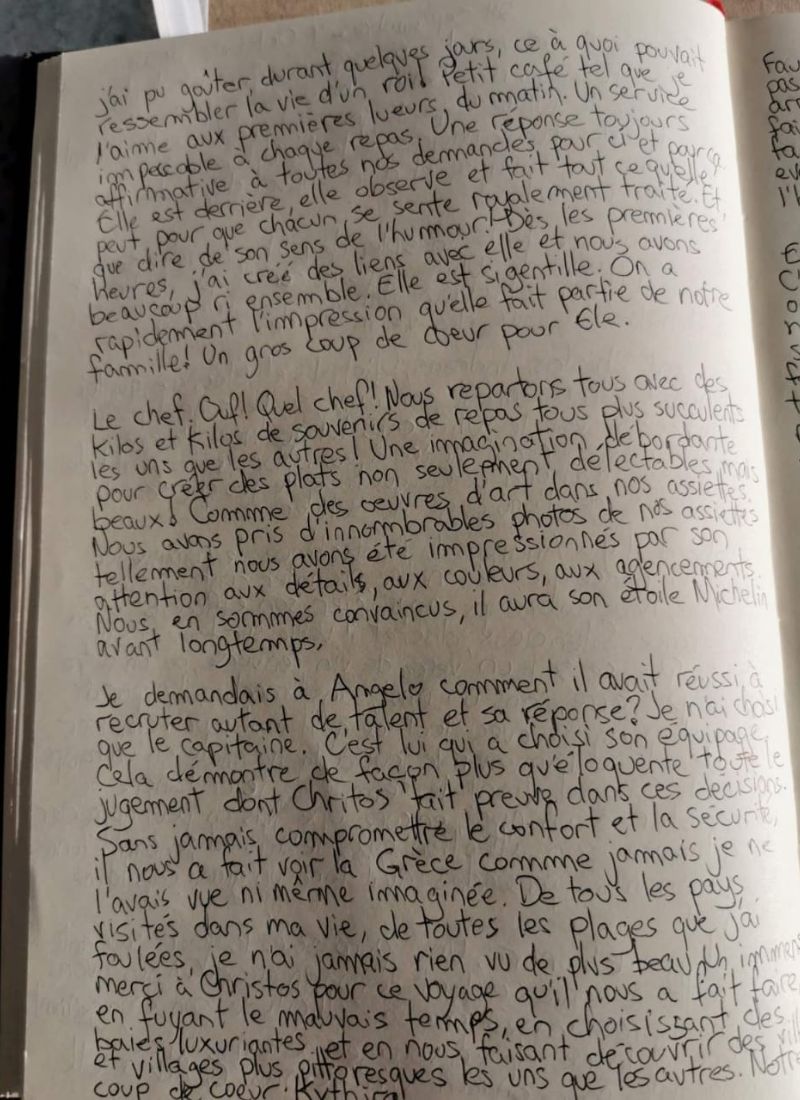 j'ai pu goûter, durant quelques jours, ce à quoi pouvait
ressembler la vie d'un roi! Petit café tel que je
l'aime aux premières lueurs du matin. Un service
impeccable à chaque repas. Une réponse toujours
affirmative à toutes nos demandes pour ci et pour ça.
Elle est derrière, elle observe et fait tout ce qu'elle
peut pour que chacun se sente royalement traité. Et
que dire de son sens de l'humour! Dès les premières
heures, j'ai créé des liens avec elle et nous avons
beaucoup ri ensemble. Elle est si gentille. On a
rapidement l'impression qu'elle fait partie de notre
famille! Un gros coup de coeur pour Ele.
Le chef. Ouf! Quel chef! Nous repartons tous avec des
kilos et kilos de souvenirs de repas tous plus succulents
les uns que les autres! Une imagination débordante
pour créer des plats non seulement délectables mais
beaux! Comme des oeuvres d'art dans nos assiettes.
Nous avons pris d'innombrables photos de nos assiettes
tellement nous avons été impressionnés par son
attention aux détails, aux couleurs, aux agencements.
Nous en sommes convaincus, il aura son étoile Michelin
avant longtemps.
Je demandais à Angelo comment il avait réussi à
recruter autant de talent et sa réponse? Je n'ai choisi
que le capitaine. C'est lui qui a choisi son équipage.
Cela démontre de façon plus qu'éloquente tout le
jugement dont Chritos fait preuve dans ces décisions.
Sans jamais compromettre le confort et la sécurité,
il nous a fait voir la Grèce comme jamais je ne
l'avais vue ni même imaginée. De tous les pays
visités dans ma vie, de toutes les plages que j'ai
foulées, je n'ai jamais rien vu de plus beau. Un immens
merci à Christos pour ce voyage qu'il nous a fait faire
en fuyant le mauvais temps, en choisissant des
baies luxuriantes et en nous faisant découvrir des vill
et villages plus pittoresques les uns que les autres. Notre
coup de coeur: Kythira